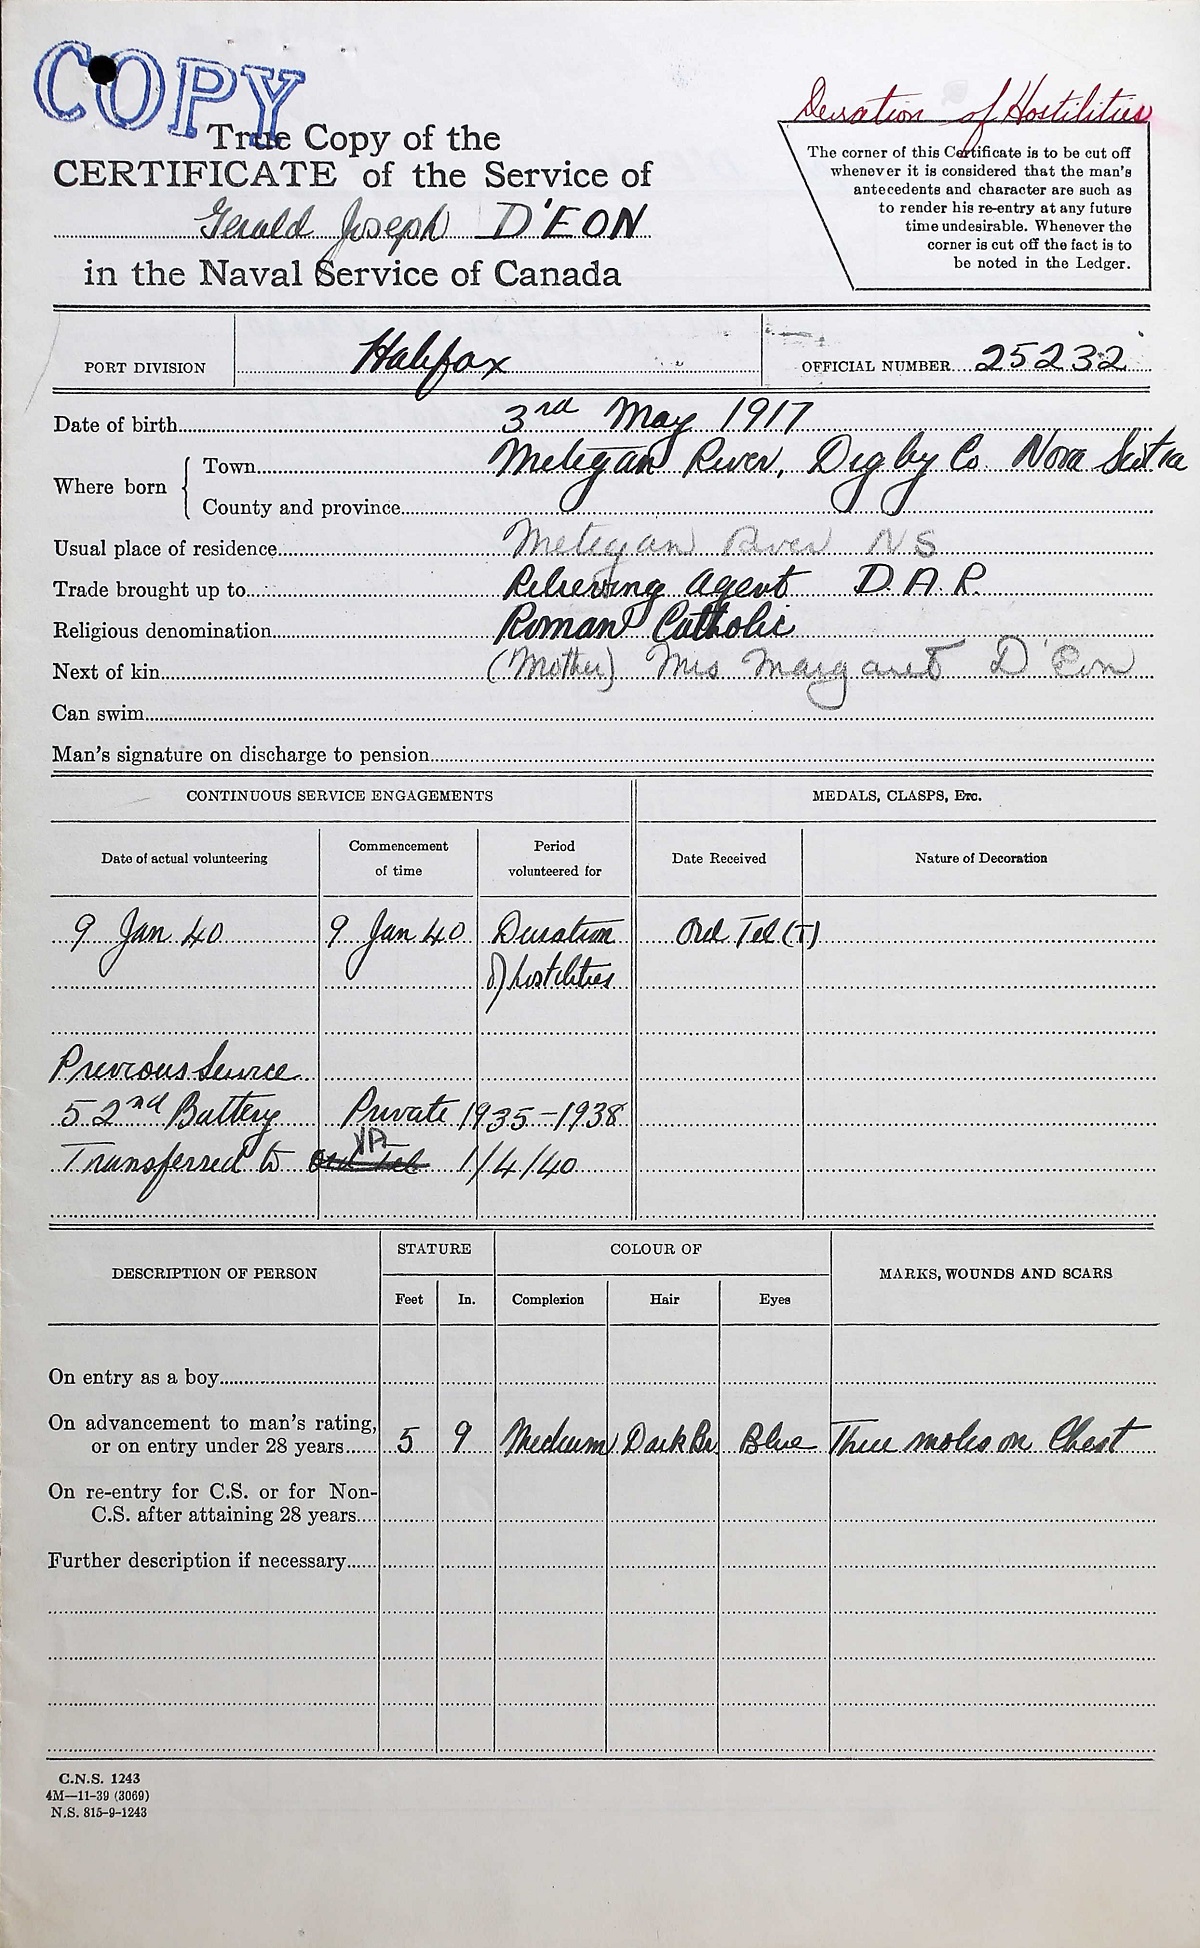 COPY
Duration of Hostilities
True Copy of the
CERTIFICATE of the Service of
Gerald Joseph D'EON
in the Naval Service of Canada
The corner of this Certificate is to be cut off
whenever it is considered that the man's
antecedents and character are such as
to render his re-entry at any future
time undesirable. Whenever the
corner is cut off the fact is to
be noted in the Ledger.
PORT DIVISION Halifax OFFICIAL NUMBER 25232
Date of birth 3rd May 1917
Where born { Town Metegan River, Digby Co. Nova Scotia
County and province
Usual place of residence Metegan River NS
Trade brought up to Relieving Agent D.A.R.
Religious denomination Roman Catholic
Next of kin (Mother) Mrs Margaret D'Eon
Can swim
Man's signature on discharge to pension
CONTINUOUS SERVICE ENGAGEMENTS MEDALS, CLASPS, Etc.
Date of actual volunteering Commencement of time Period volunteered for Date Received Nature of Decoration
9 Jan 40 9 Jan 40 Duration Ord Tel (T)
of hostilities
Previous Service
52nd Battery Private 1935-1938
Transferred to Ord Tel 1/4/40
DESCRIPTION OF PERSON STATURE COLOUR OF MARKS, WOUNDS AND SCARS
Feet In. Complexion Hair Eyes
On entry as a boy
On advancement to man's rating,
or on entry under 28 years 5 9 Medium Dark Br. Blue Three moles on Chest
On re-entry for C.S. or for Non-
C.S. after attaining 28 years
Further description if necessary
C.N.S. 1243
4M—11-39 (3069)
N.S. 815-9-1243